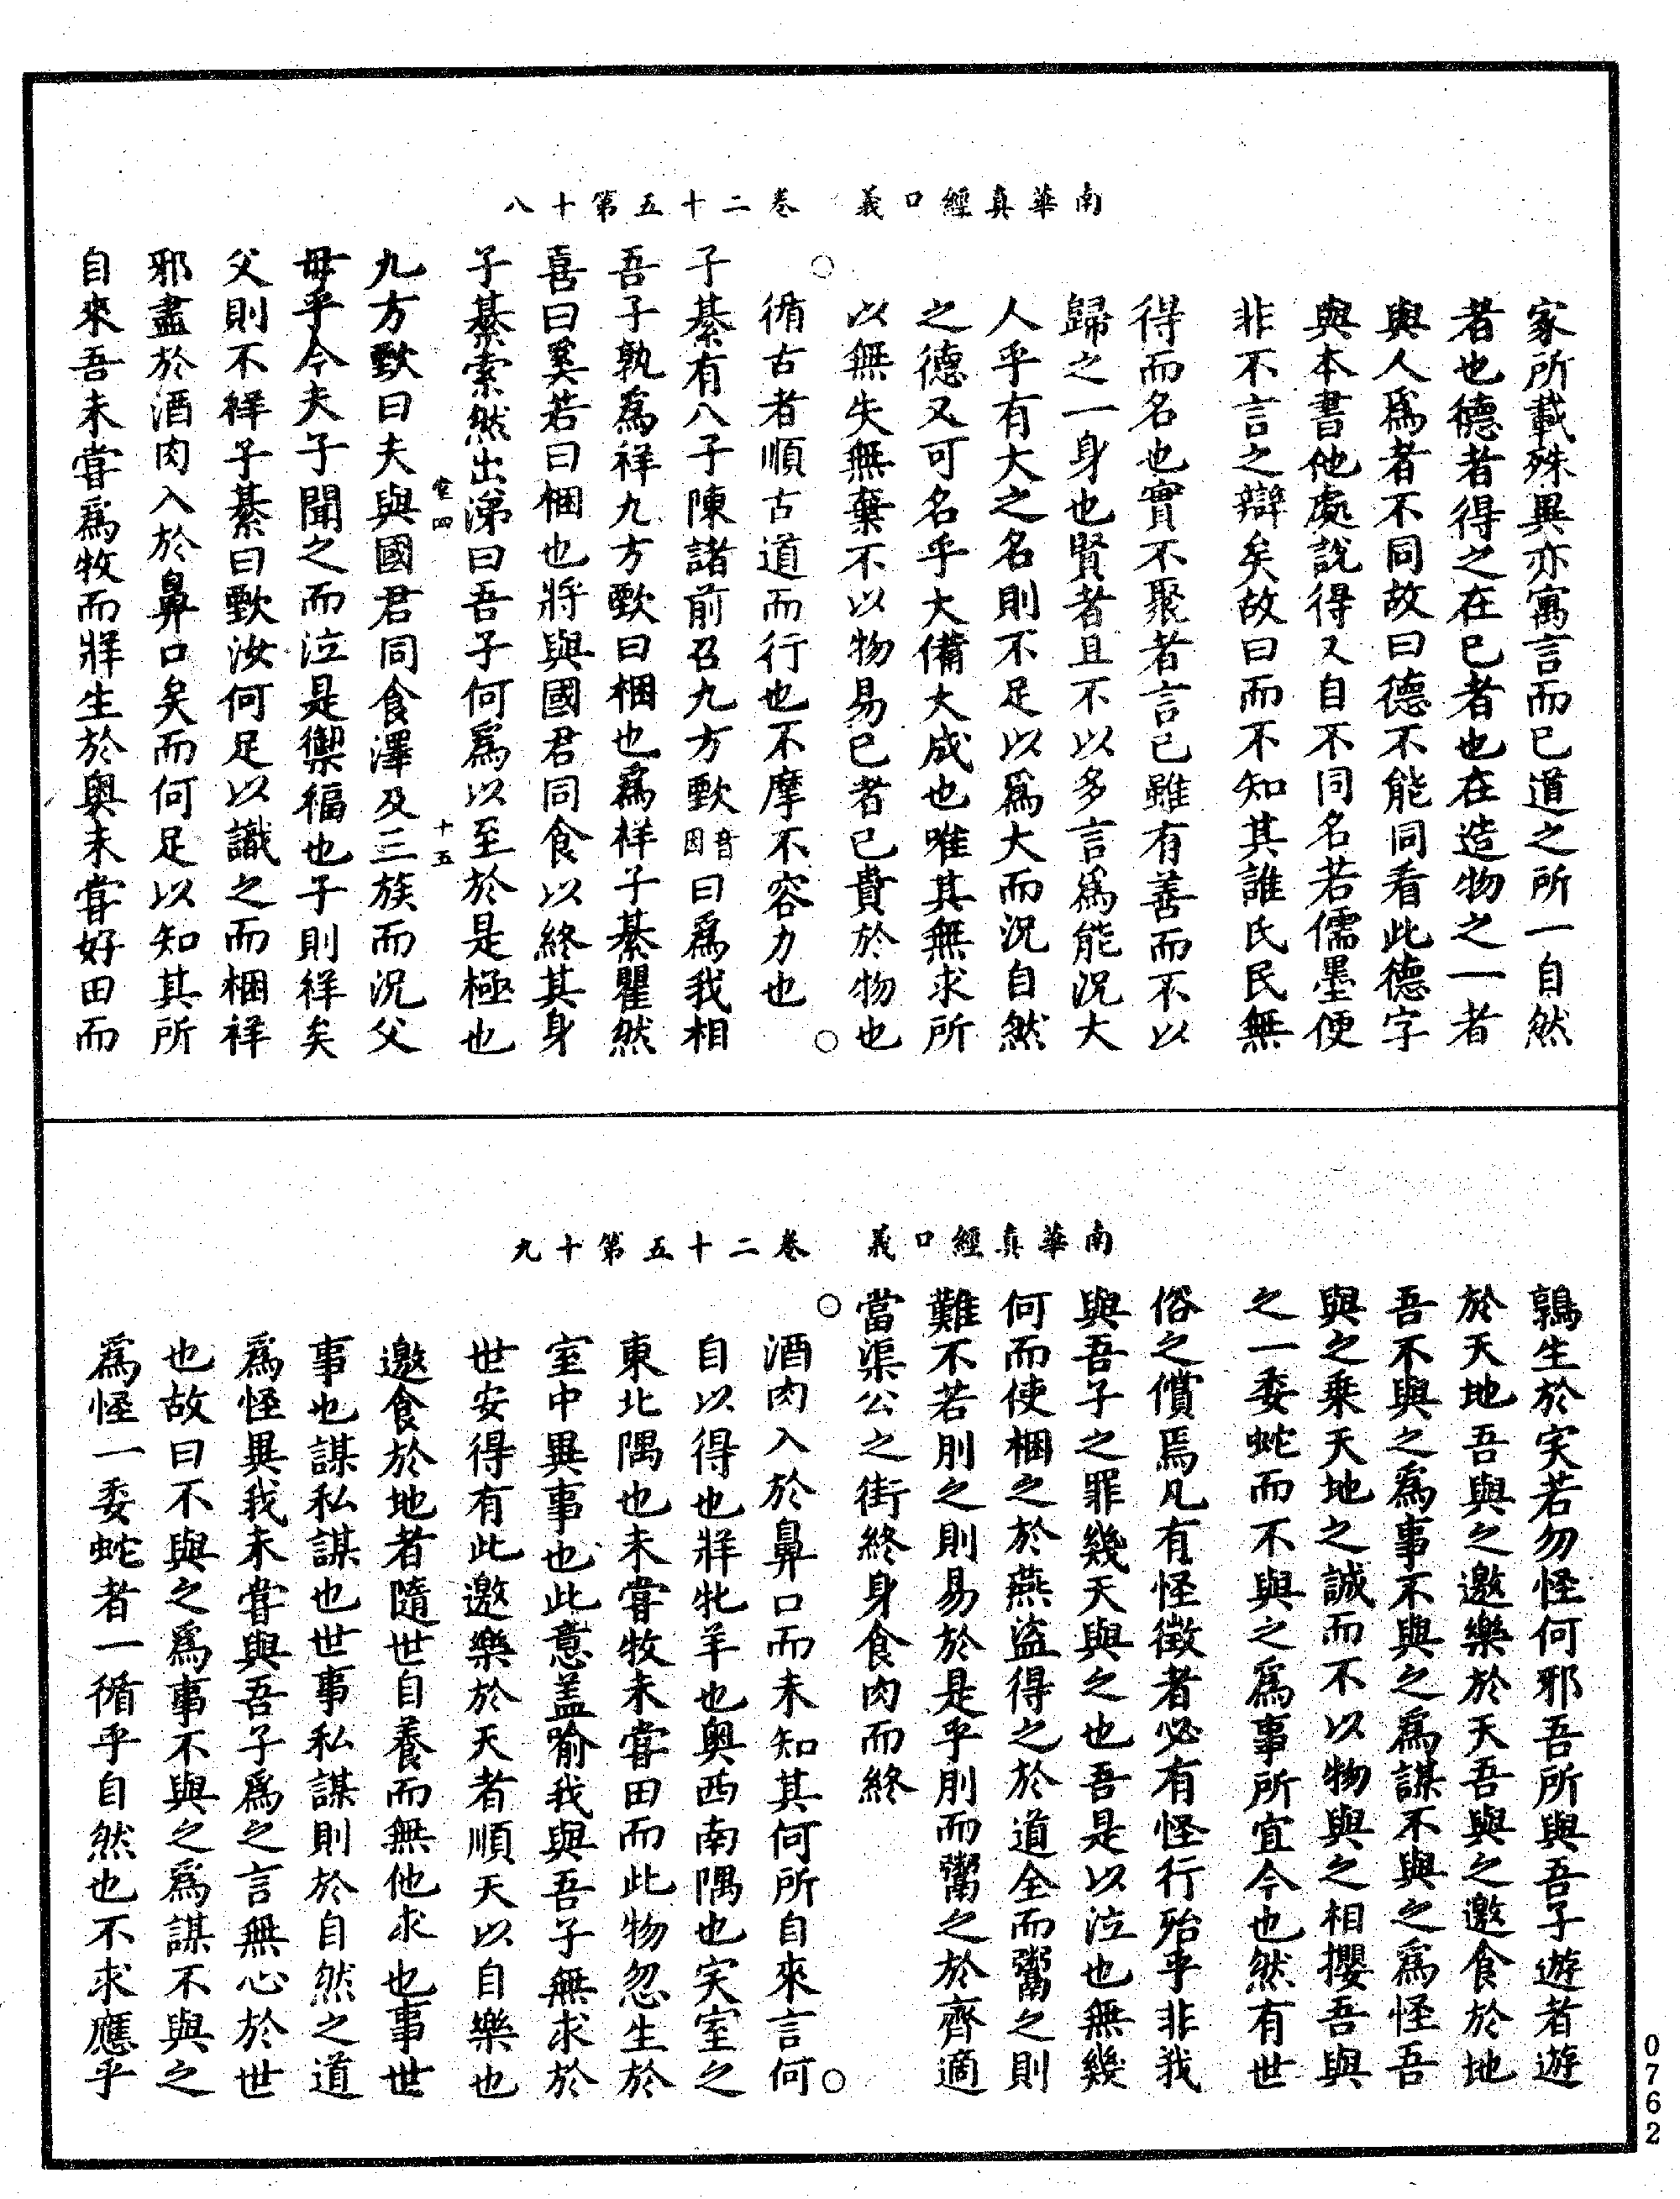 南華真經口義　卷二十五第十八
家所載殊異亦寓言而已道之所一自然
者也德者得之在已者也在造物之一者
與人爲者不同故曰德不能同看此德字
與本書他處說得又自不同名若儒墨便
非不言之辯矣故曰而不知其誰氏民無
得而名也實不聚者言已雖有善而不以
歸之一身也賢者且不以多言爲能況大
人乎有大之名則不足以爲大而況自然
之德又可名乎大備大成也唯其無求所
以無失無棄不以物易已者已貴於物也
循古者順古道而行也不摩不容力也
○　○
子綦有八子陳諸前召九方歅音因曰爲我相
吾子孰爲祥九方歅曰梱也爲祥子綦瞿然
喜曰奚若曰梱也將與國君同食以終其身
子綦索然出涕曰吾子何爲以至於是極也
九方歅曰夫與國君同食澤及三族而況父
毋乎今夫子聞之而泣是禦福也子則祥矣
父則不祥子綦曰歅汝何足以識之而梱祥
邪盡於酒肉入於鼻口矣而何足以知其所
自來吾未嘗爲牧而牂生於奧未嘗好田而
十五
南華真經口義　卷二十五第十九
鶉生於宎若勿怪何邪吾所與吾子遊者遊
於天地吾與之邀樂於天吾與之邀食於地
吾不與之爲事不與之爲謀不與之爲怪吾
與之乘天地之誠而不以物與之相攖吾與
之一委蛇而不與之爲事所宜今也然有世
俗之償焉凡有怪徵者必有怪行殆乎非我
與吾子之罪幾天與之也吾是以泣也無幾
何而使梱之於燕盜得之於道全而鬻之則
難不若刖之則易於是乎刖而鬻之於齊適
當渠公之街終身食肉而終
○　○
酒肉入於鼻口而未知其何所自來言何
自以得也牂牝羊也奧西南隅也宎室之
東北隅也未嘗牧未嘗田而此物忽生於
室中異事也此意盖喻我與吾子無求於
世安得有此邀樂於天者順天以自樂也
邀食於地者隨世自養而無他求也事世
事也謀私謀也世事私謀則於自然之道
爲怪異我未嘗與吾子爲之言無心於世
也故曰不與之爲事不與之爲謀不與之
爲怪一委蛇者一循乎自然也不求應乎
0762